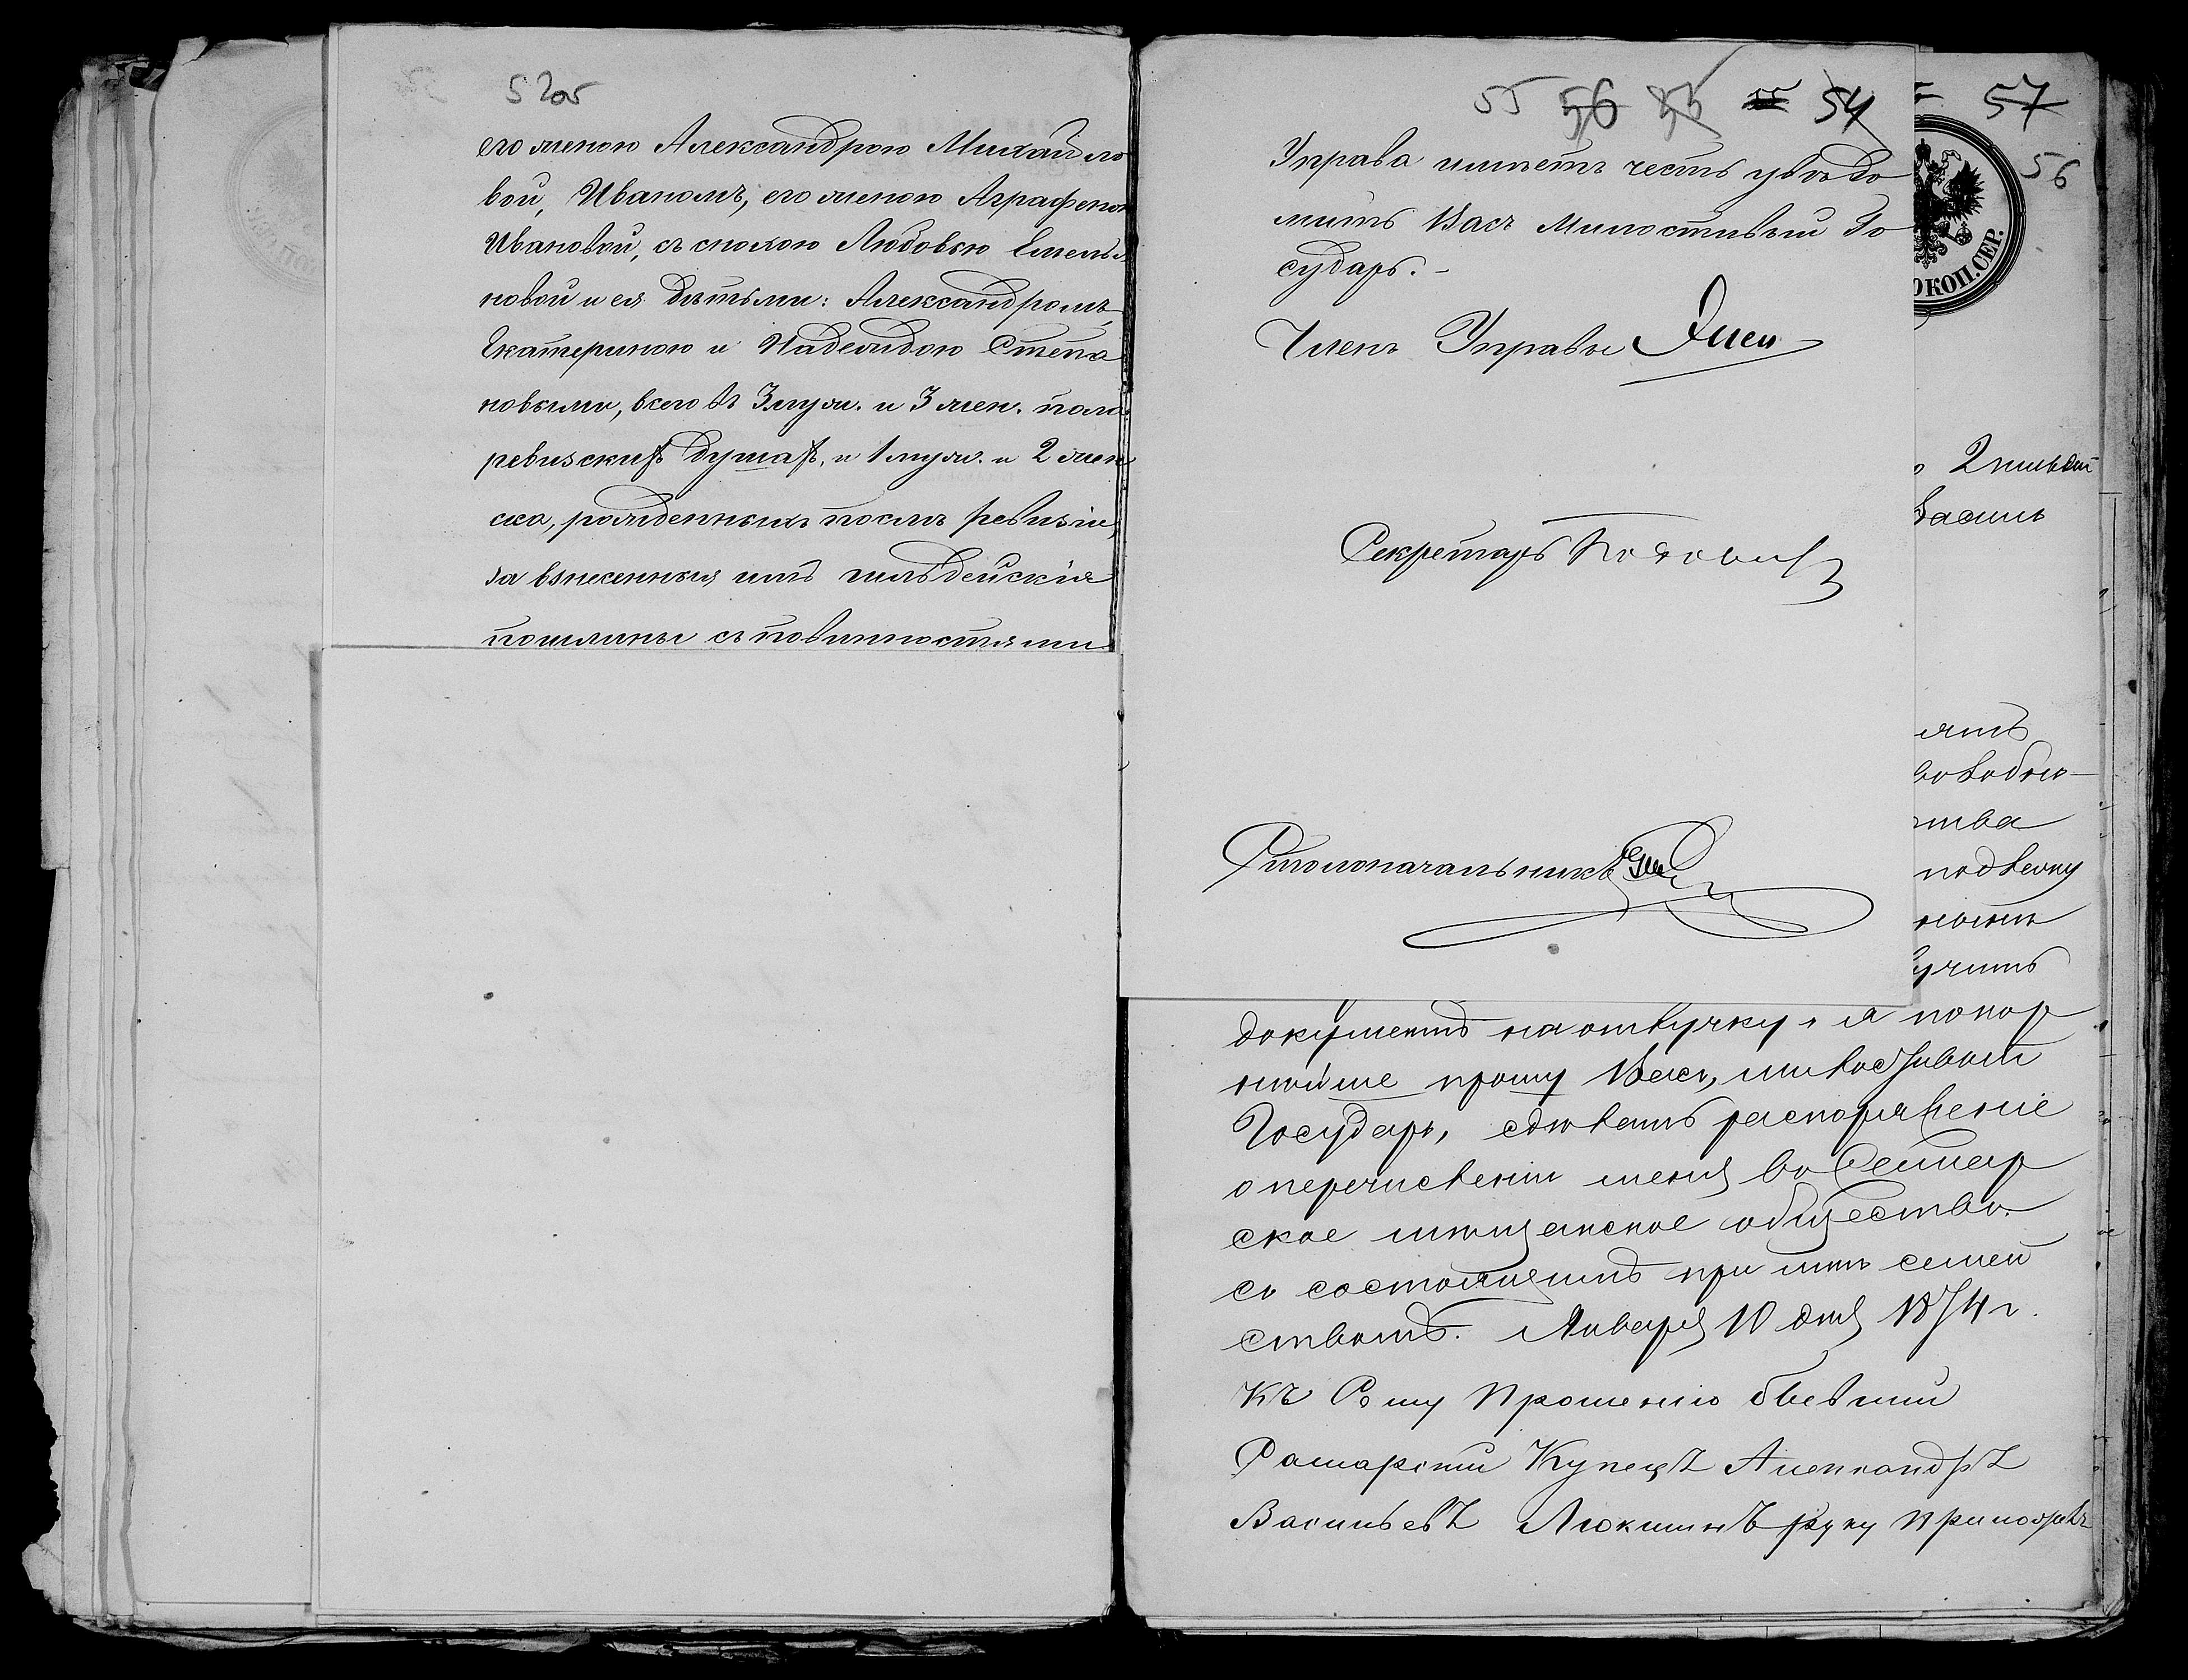 52об
его женою Александрою Михайло
вой, Иваномъ, его женою Аграфеною
Ивановой, съ снохою Любовью Емелья
новой и ея дѣтьми: Александромъ,
Екатериною и Надеждою Степа
новыми, всего въ 3 муж. и 3 жен. пола
ревизскихъ душахъ, и 1 муж. и 2 жен
ска, рожденныхъ послѣ ревизіи,
за взнесенныя имъ гильдейскія
пошлины съ повинностями
55 56 55 54
Управа имѣетъ честь увѣдо
мить Васъ Милостивый Го
сударь.-
Членъ Управы
Секретарь
Столоначальникъ
57
56
КОП.СЕР.
2 гильдіи
Василь
ятъ
тва
подвергну
учить
документъ на отлучку, я покор
нѣйше прошу Васъ, милостивый
Государь, сдѣлать распоряженіе
о перечисленіи меня въ Самар
ское мѣщанское общество
съ состоящимъ при мнѣ семей
ствомъ. Января 10 дня 1874 г.
Къ Сему Прошенію бывшій
Самарскій Купецъ Александръ
Васильевъ Люкшинъ руку приложилъ